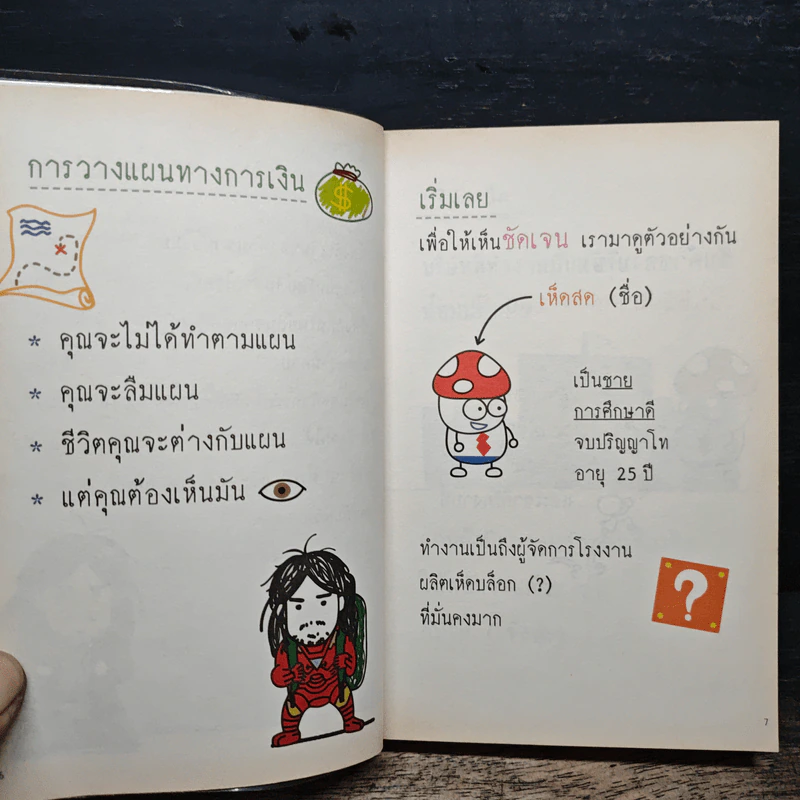 การวางแผนทางการเงิน
$
* คุณจะไม่ได้ทำตามแผน
* คุณจะลืมแผน
* ชีวิตคุณจะต่างกับแผน
* แต่คุณต้องเห็นมัน
เริ่มเลย
เพื่อให้เห็นชัดเจน เรามาดูตัวอย่างกัน
เห็ดสด (ชื่อ)
เป็นชาย
การศึกษาดี
จบปริญญาโท
อายุ 25 ปี
ทำงานเป็นถึงผู้จัดการโรงงาน
ผลิตเห็ดบล็อก (?)
ที่มั่นคงมาก
?
7